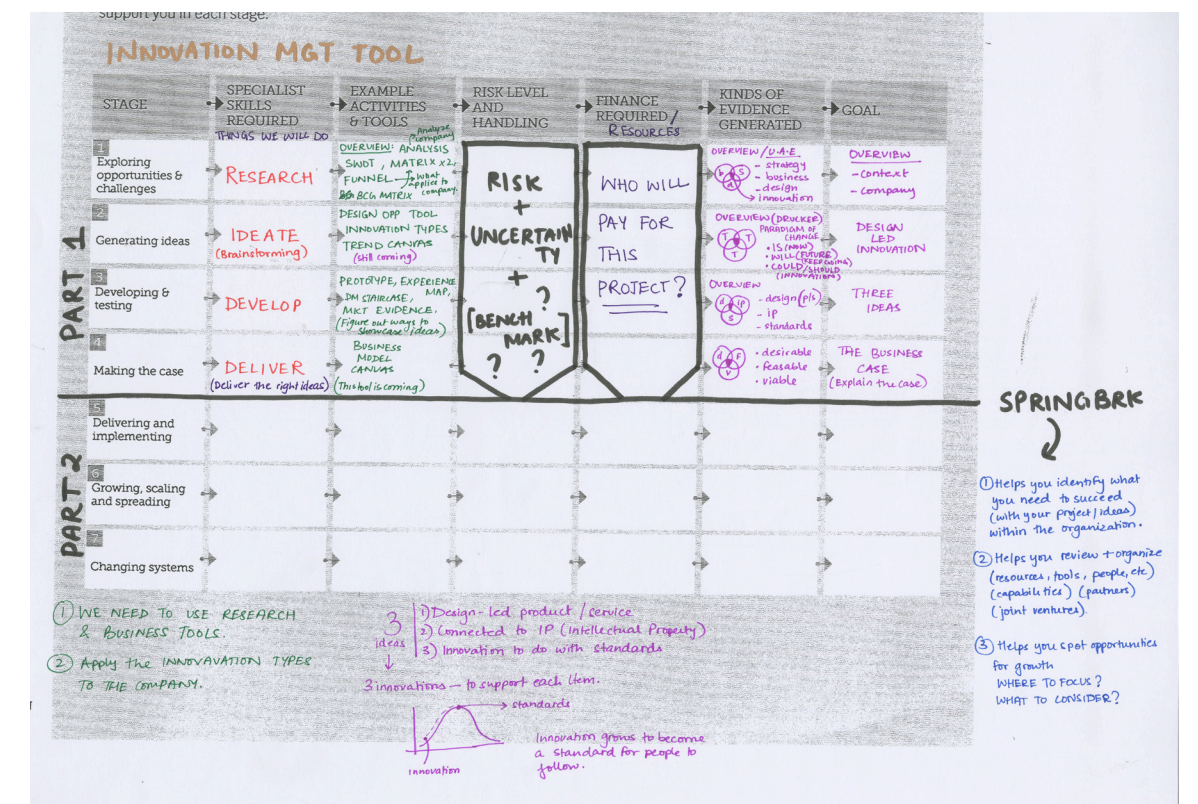 support you in each stage.
INNOVATION MGT TOOL
STAGE
SPECIALIST
SKILLS
REQUIRED
THINGS WE WILL DO
EXAMPLE
ACTIVITIES
& TOOLS
RISK LEVEL
AND
HANDLING
FINANCE
REQUIRED /
RESOURCES
KINDS OF
EVIDENCE
GENERATED
GOAL
PART 1
1
Exploring
opportunities &
challenges
RESEARCH
Analyze
company
OVERVIEW: ANALYSIS
SWOT, MATRIX x2,
FUNNEL
What
applies to
company.
BCG MATRIX
RISK
+
UNCERTAIN
TY
+
?
[BENCH
MARK]
? ?
WHO WILL
PAY FOR
THIS
PROJECT?
OVERVIEW/U.A.E
b S
d
- strategy
- business
- design
innovation
OVERVIEW
- context
- company
2
Generating ideas
IDEATE
(Brainstorming)
DESIGN OPP TOOL
INNOVATION TYPES
TREND CANVAS
(still coming)
OVERVIEW (DRUCKER)
PARADIGM OF
CHANGE
T T
T
• IS (NOW)
• WILL (FUTURE)
(KEEP GOING)
• COULD/SHOULD
(INNOVATIONS)
DESIGN
LED
INNOVATION
3
Developing &
testing
DEVELOP
PROTOTYPE, EXPERIENCE
MAP,
DM STAIRCASE,
MKT EVIDENCE.
(Figure out ways to
showcase ideas)
OVERVIEW
d ip
S
- design (p/s)
- ip
- standards
THREE
IDEAS
4
Making the case
DELIVER
(Deliver the right ideas)
BUSINESS
MODEL
CANVAS
(This tool is coming)
d F
V
• desirable
• feasable
• viable
THE BUSINESS
CASE
(Explain the case)
PART 2
5
Delivering and
implementing
6
Growing, scaling
and spreading
7
Changing systems
SPRINGBRK
① Helps you identify what
you need to succeed
(with your project/ideas)
within the organization.
② Helps you review + organize
(resources, tools, people, etc)
(capabilities) (partners)
(joint ventures).
③ Helps you spot opportunities
for growth
WHERE TO FOCUS?
WHAT TO CONSIDER?
① WE NEED TO USE RESEARCH
& BUSINESS TOOLS.
② Apply the INNOVAVATION TYPES
TO THE COMPANY.
3
ideas
1) Design-led product / service
2) Connected to IP (Intellectual Property)
3) Innovation to do with standards
3 innovations — to support each item.
standards
innovation
Innovation grows to become
a standard for people to
follow.